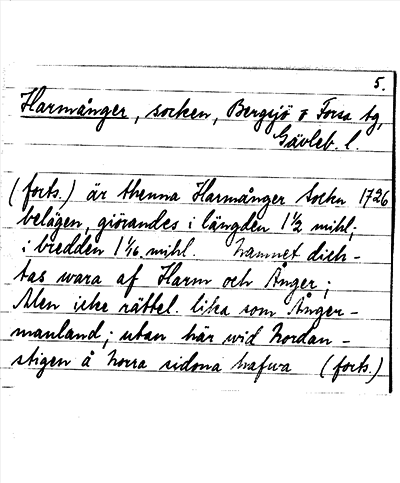 5.
Harmånger, socken, Bergsjö o Forsa tg,
Gävleb. l.
(forts.) är thenna Harmånger Sockn 1726
belägen, giörandes i längden 1 1/2 mihl;
i bredden 1 1/16 mihl. Namnet dich-
tas wara af Harm och Ånger;
Men icke rättel. lika som Ånger-
manland; utan här wid Nordan-
stigen å Norra sidona hafwa (forts.)